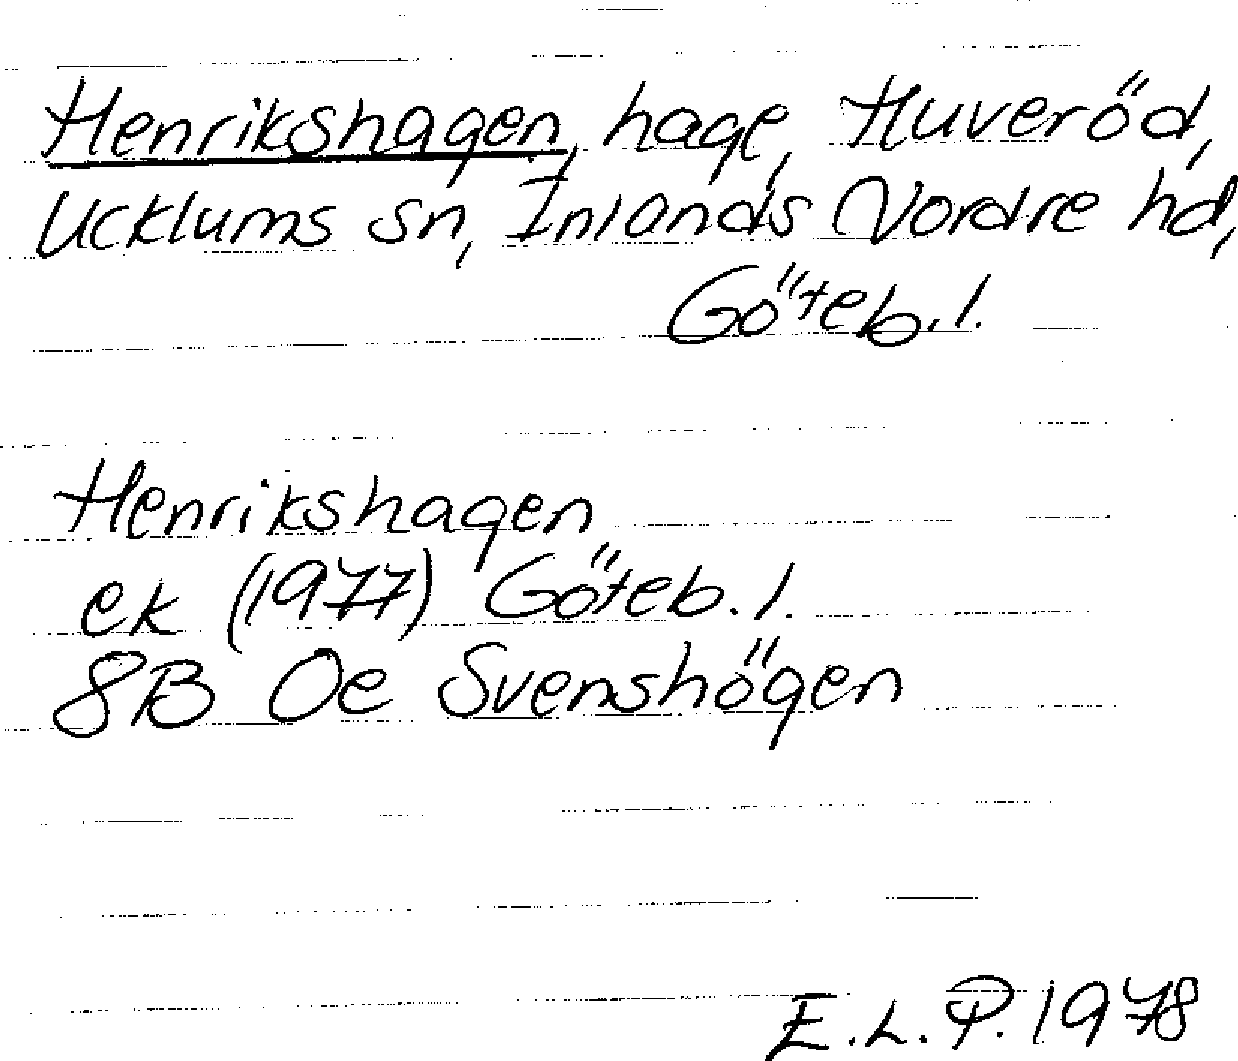 Henrikshagen, hage, Huveröd,
Ucklums sn, Inlands Nordre hd,
Göteb. l.
Henrikshagen
ek (1977) Göteb. l.
8B Oe Svenshögen
E.L.P. 1978